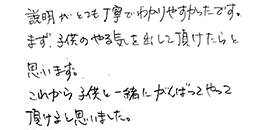 説明がとても丁寧でわかりやすかったです。
まず、子供のやる気を出して頂けたらと
思います。
これから子供と一緒にがんばってやって
頂けると思いました。